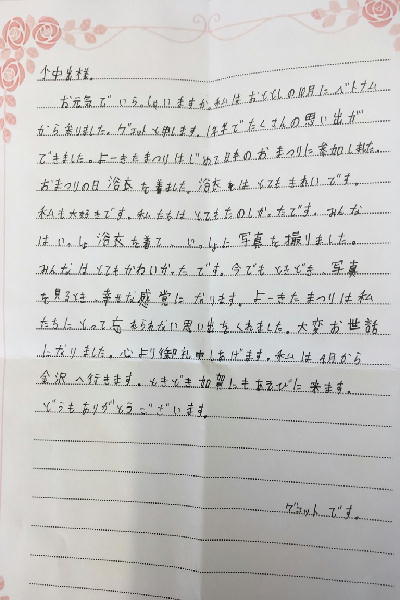 中出様。
お元気でいらっしゃいますか。私はおととしの10月にベトナム
から来ました。グェットと申します。1年半でたくさんの思い出が
できました。よーきたまつりはじめて日本のおまつりに参加しました。
おまつりの日 浴衣を着ました。浴衣はとてもきれいです。
私も大好きです。私たちはとてもたのしかったです。みんな
はいっしょ 浴衣を着て、いっしょに写真を撮りました。
みんなはとてもかわいかったです。今でもときどき 写真
を見るとき、幸せな感覚になります。よーきたまつりは私
たちにとって忘れられない思い出をくれました。大変お世話
になりました。心より御礼申しあげます。私は4月から
金沢へ行きます。ときどき加賀にもあそびに来ます。
どうもありがとうございます。
グェットです。